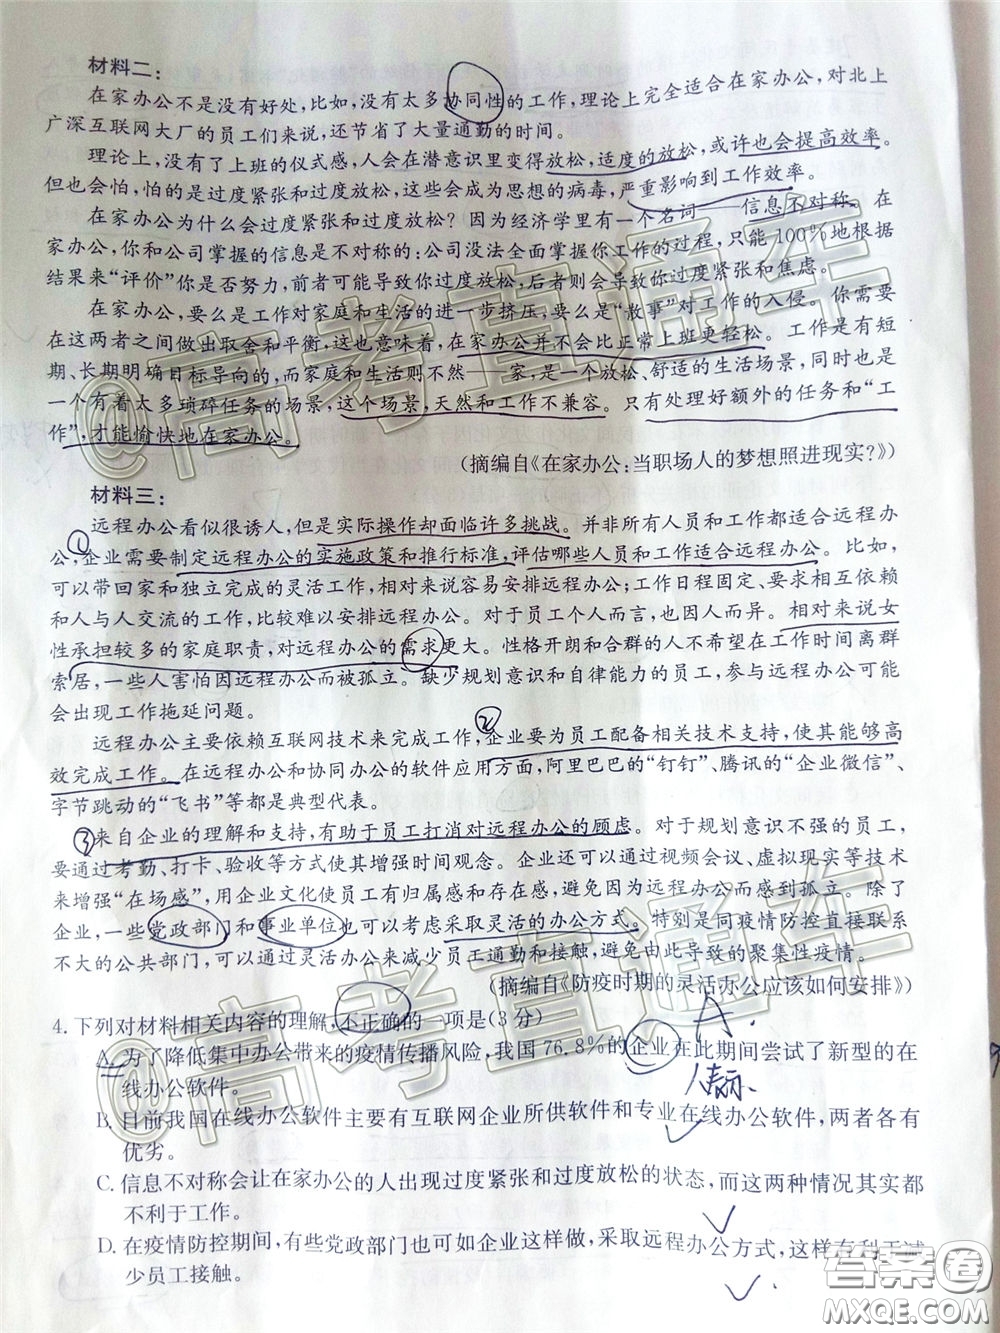 材料二：
在家办公不是没有好处,比如,没有太多协同性的工作,理论上完全适合在家办公,对北上
广深互联网大厂的员工们来说,还节省了大量通勤的时间。
理论上,没有了上班的仪式感,人会在潜意识里变得放松,适度的放松,或许也会提高效率。
但也会怕,怕的是过度紧张和过度放松,这些会成为思想的病毒,严重影响到工作效率。
在家办公为什么会过度紧张和过度放松？因为经济学里有一个名词——信息不对称。在
家办公,你和公司掌握的信息是不对称的:公司没法全面掌握你工作的过程,只能100%地根据
结果来“评价”你是否努力,前者可能导致你过度放松,后者则会导致你过度紧张和焦虑。
在家办公,要么是工作对家庭和生活的进一步挤压,要么是“散事”对工作的入侵。你需要
在这两者之间做出取舍和平衡,这也意味着,在家办公并不会比正常上班更轻松。工作是有短
期、长期明确目标导向的,而家庭和生活则不然——家,是一个放松、舒适的生活场景,同时也是
一个有着太多琐碎任务的场景,这个场景,天然和工作不兼容。只有处理好额外的任务和“工
作”,才能愉快地在家办公。
(摘编自《在家办公:当职场人的梦想照进现实?》)
材料三：
远程办公看似很诱人,但是实际操作却面临许多挑战。并非所有人员和工作都适合远程办
公,企业需要制定远程办公的实施政策和推行标准,评估哪些人员和工作适合远程办公。比如,
①
可以带回家和独立完成的灵活工作,相对来说容易安排远程办公;工作日程固定、要求相互依赖
和人与人交流的工作,比较难以安排远程办公。对于员工个人而言,也因人而异。相对来说女
性承担较多的家庭职责,对远程办公的需求更大。性格开朗和合群的人不希望在工作时间离群
索居,一些人害怕因远程办公而被孤立。缺少规划意识和自律能力的员工,参与远程办公可能
会出现工作拖延问题。
②
远程办公主要依赖互联网技术来完成工作,企业要为员工配备相关技术支持,使其能够高
效完成工作。在远程办公和协同办公的软件应用方面,阿里巴巴的“钉钉”、腾讯的“企业微信”、
字节跳动的“飞书”等都是典型代表。
③来自企业的理解和支持,有助于员工打消对远程办公的顾虑。对于规划意识不强的员工,
要通过考勤、打卡、验收等方式使其增强时间观念。企业还可以通过视频会议、虚拟现实等技术
来增强“在场感”,用企业文化使员工有归属感和存在感,避免因为远程办公而感到孤立。除了
企业,一些党政部门和事业单位也可以考虑采取灵活的办公方式。特别是同疫情防控直接联系
不大的公共部门,可以通过灵活办公来减少员工通勤和接触,避免由此导致的聚集性疫情。
(摘编自《防疫时期的灵活办公应该如何安排》)
4.下列对材料相关内容的理解,不正确的一项是(3分)
A.
A.为了降低集中办公带来的疫情传播风险,我国76.8%的企业在此期间尝试了新型的在
线办公软件。
B.目前我国在线办公软件主要有互联网企业所供软件和专业在线办公软件,两者各有
优劣。
C.信息不对称会让在家办公的人出现过度紧张和过度放松的状态,而这两种情况其实都
不利于工作。
D.在疫情防控期间,有些党政部门也可如企业这样做,采取远程办公方式,这样有利于减
少员工接触。
@高考直通车
@高考直通车
答案圈
MXQE.COM